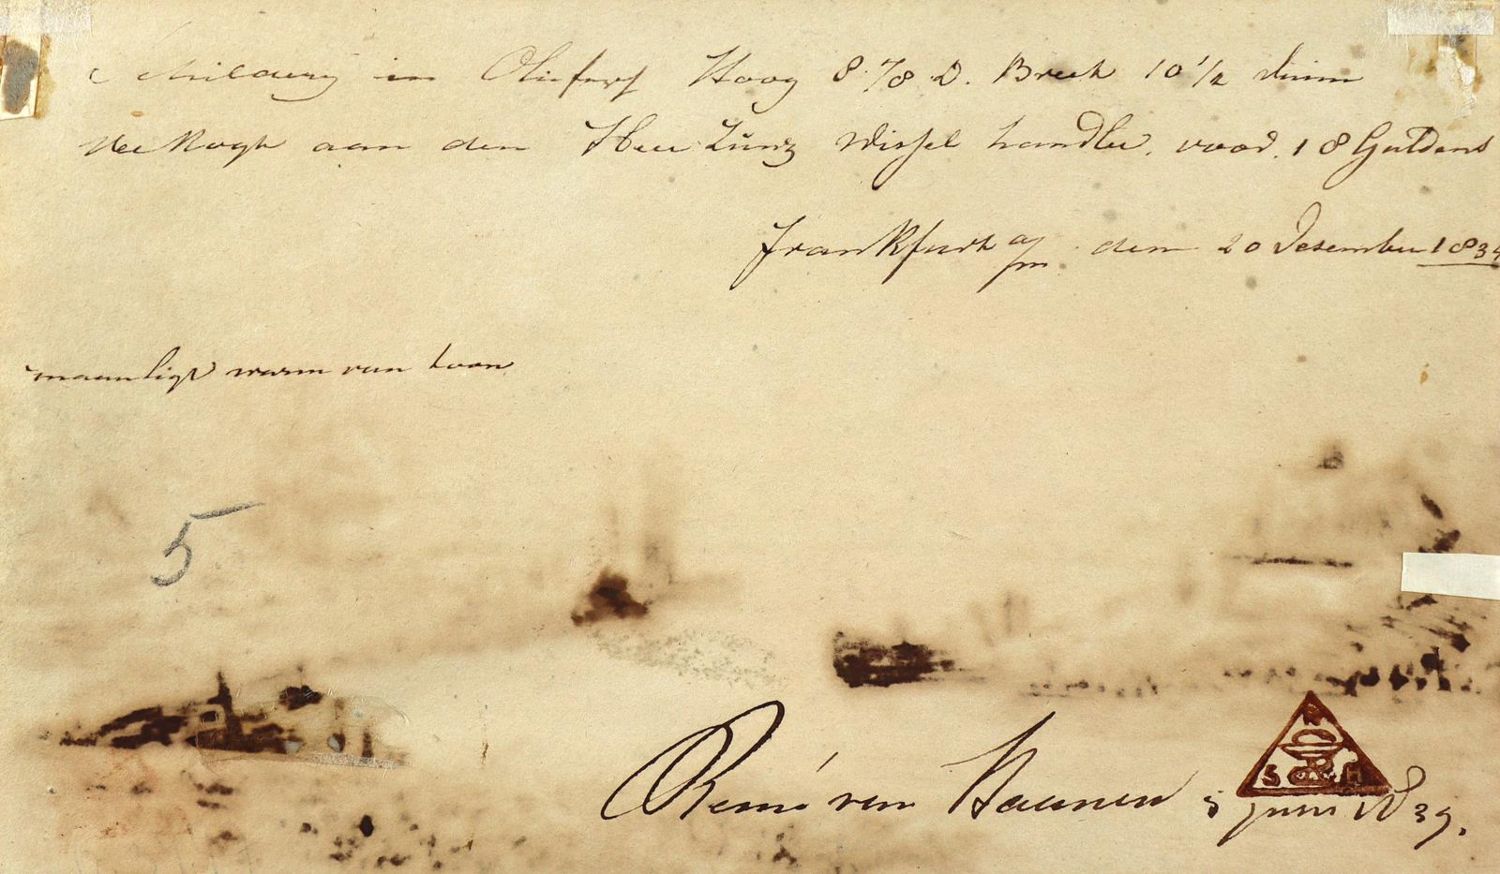 Schildery in Olieferf Hoog 8 7/8 D. Breek 10 1/2 duim
Verkogt aan den Heer Zunz Wissel handler, voor 18 Guldens
Frankfurth a/m den 20 Desember 1834
maanligt warm van toon
5
Remi van Haanen 5 Juni 1839.
S H